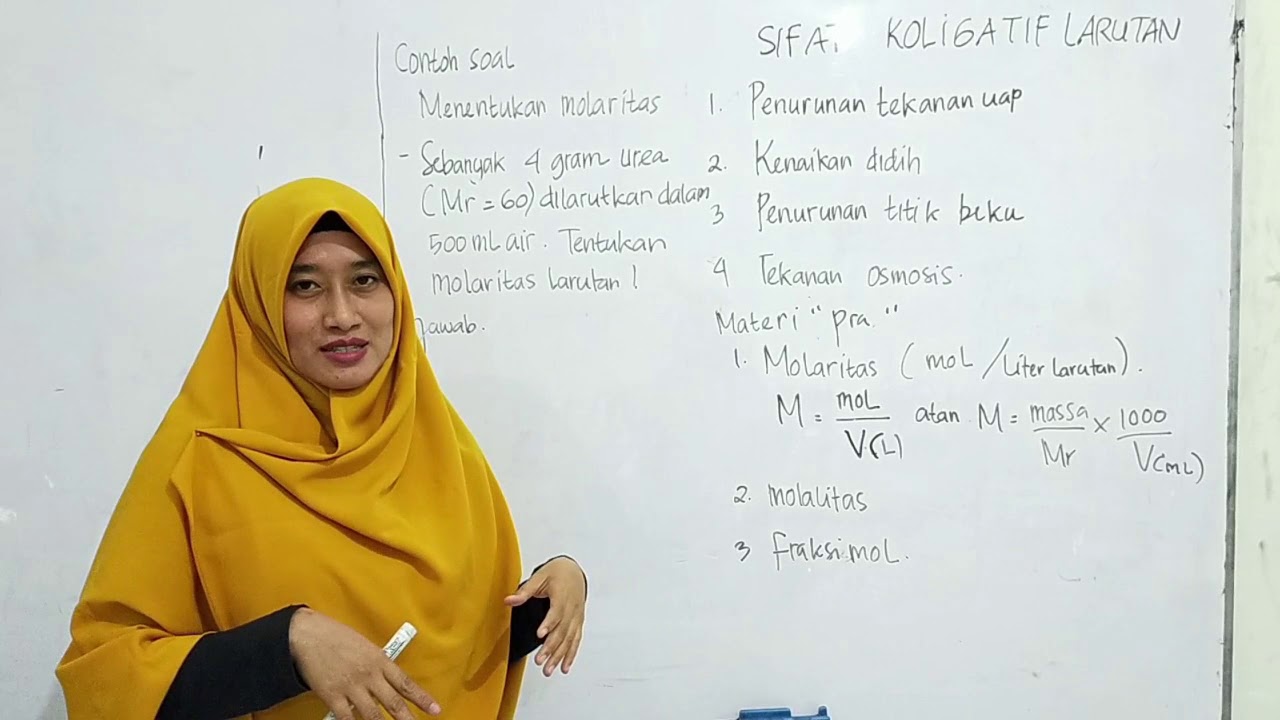 Contoh soal
Menentukan molaritas
- Sebanyak 4 gram urea
(Mr = 60) dilarutkan dalam
500 mL air. Tentukan
molaritas larutan !
Jawab.
SIFAT KOLIGATIF LARUTAN
1. Penurunan tekanan uap
2. Kenaikan didih
3 Penurunan titik beku
4 Tekanan osmosis.
Materi "pra."
1. Molaritas (mol/Liter larutan).
M = mol / V(L) atau M = massa / Mr × 1000 / V(mL)
2. molalitas
3 fraksi mol.